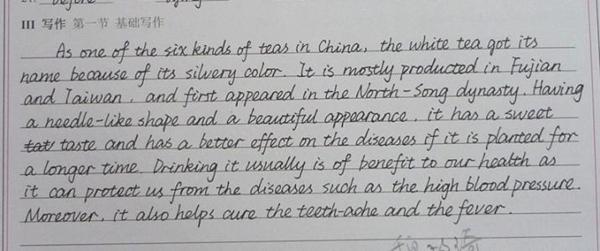 III 写作 第一节 基础写作
As one of the six kinds of teas in China, the white tea got its
name because of its silvery color. It is mostly producted in Fujian
and Taiwan, and first appeared in the North-Song dynasty. Having
a needle-like shape and a beautiful appearance, it has a sweet
taste and has a better effect on the diseases if it is planted for
a longer time. Drinking it usually is of benefit to our health as
it can protect us from the diseases such as the high blood pressure.
Moreover, it also helps cure the teeth-ache and the fever.